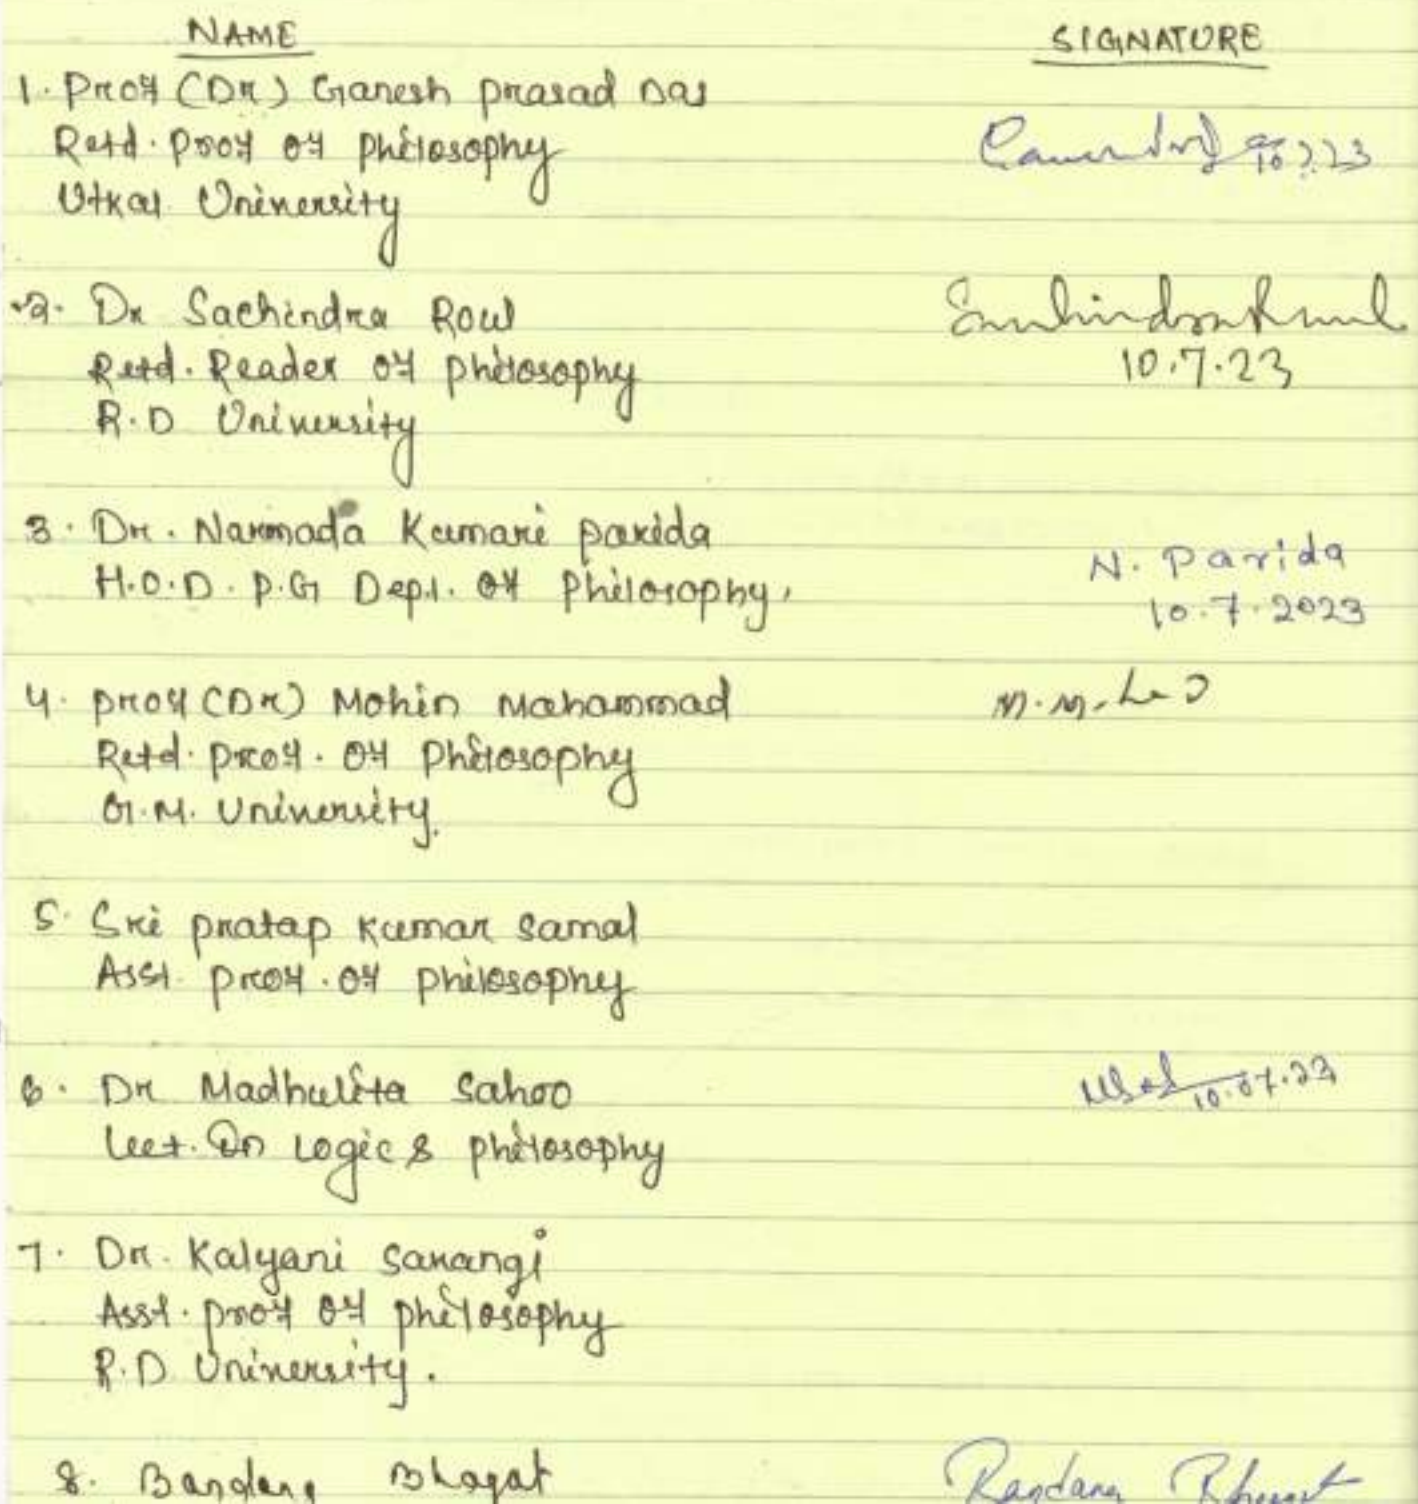 NAME SIGNATURE
1. Prof (Dr) Ganesh prasad Das
Retd. Prof of philosophy
Utkal University
10.7.23
2. Dr Sachindra Roul
Sachindra Roul
Retd. Reader of philosophy
10.7.23
R.D University
3. Dr. Narmada Kumari parida
N. Parida
H.O.D. P.G Dept. of Philosophy,
10.7.2023
4. prof (Dr) Mohin Mahammad
Retd. prof. of Philosophy
G.M. University.
5. Sri pratap kumar samal
Asst. prof. of philosophy
6. Dr Madhulita Sahoo
10.07.23
Lect. In Logic & philosophy
7. Dr. Kalyani sarangi
Asst. prof of philosophy
R.D. University.
8. Bandana Bhagat
Bandana Bhagat